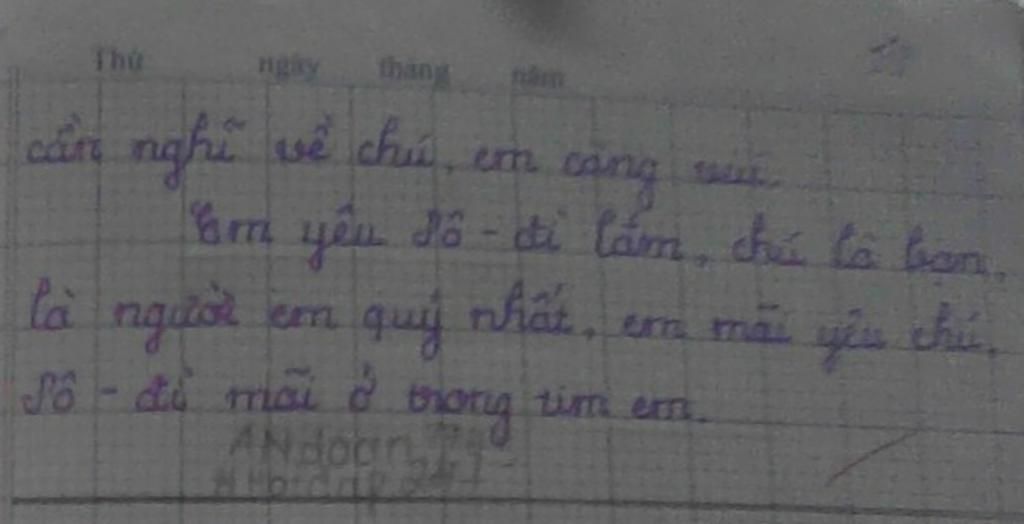 Thứ ngày tháng năm
cần nghĩ về chú, em càng vui.
Em yêu Sô-đi lắm, chú là bạn,
là người em quý nhất, em mãi yêu chú,
Sô-đi mãi ở trong tim em.
ANdoan